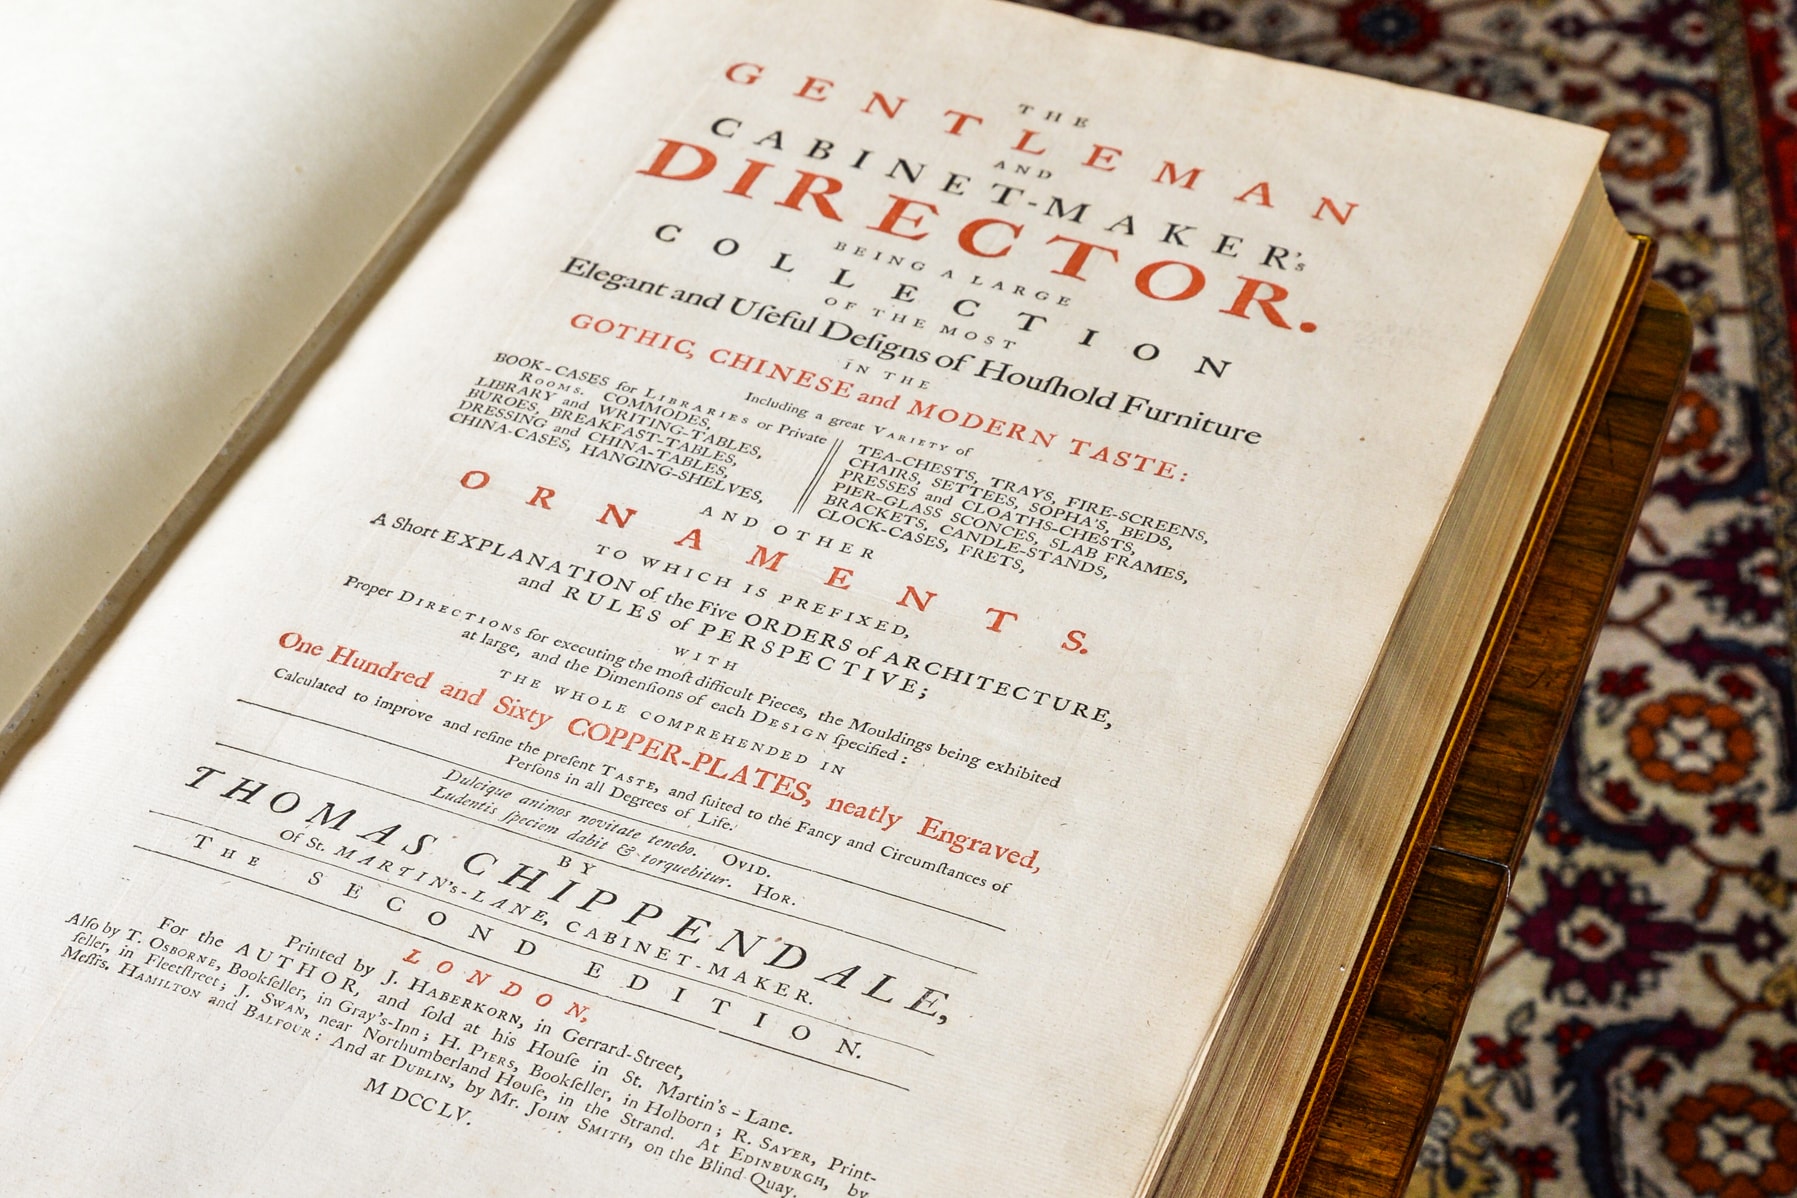 THE
GENTLEMAN
AND
CABINET-MAKER's
DIRECTOR.
BEING A LARGE
COLLECTION
OF THE MOST
Elegant and Uſeful Deſigns of Houſhold Furniture
IN THE
GOTHIC, CHINESE and MODERN TASTE:
Including a great VARIETY of
BOOK-CASES for LIBRARIES or Private
ROOMS. COMMODES,
LIBRARY and WRITING-TABLES,
BUROES, BREAKFAST-TABLES,
DRESSING and CHINA-TABLES,
CHINA-CASES, HANGING-SHELVES,
TEA-CHESTS, TRAYS, FIRE-SCREENS,
CHAIRS, SETTEES, SOPHA'S, BEDS,
PRESSES and CLOATHS-CHESTS,
PIER-GLASS SCONCES, SLAB FRAMES,
BRACKETS, CANDLE-STANDS,
CLOCK-CASES, FRETS,
AND OTHER
ORNAMENTS.
TO WHICH IS PREFIXED,
A Short EXPLANATION of the Five ORDERS of ARCHITECTURE,
and RULES of PERSPECTIVE;
WITH
Proper DIRECTIONS for executing the moſt difficult Pieces, the Mouldings being exhibited
at large, and the Dimenſions of each DESIGN ſpecified:
THE WHOLE COMPREHENDED IN
One Hundred and Sixty COPPER-PLATES, neatly Engraved,
Calculated to improve and refine the preſent TASTE, and ſuited to the Fancy and Circumſtances of
Perſons in all Degrees of Life.
Dulcique animos novitate tenebo. OVID.
Ludentis ſpeciem dabit & torquebitur. HOR.
BY
THOMAS CHIPPENDALE,
Of St. MARTIN's-LANE, CABINET-MAKER.
THE SECOND EDITION.
LONDON,
Printed by J. HABERKORN, in Gerrard-Street,
For the AUTHOR, and ſold at his Houſe in St. Martin's-Lane.
Alſo by T. OSBORNE, Bookſeller, in Gray's-Inn; H. PIERS, Bookſeller, in Holborn; R. SAYER, Print-
ſeller, in Fleetſtreet; J. SWAN, near Northumberland Houſe, in the Strand. At EDINBURGH, by
Meſſrs. HAMILTON and BALFOUR: And at DUBLIN, by Mr. JOHN SMITH, on the Blind Quay.
MDCCLV.